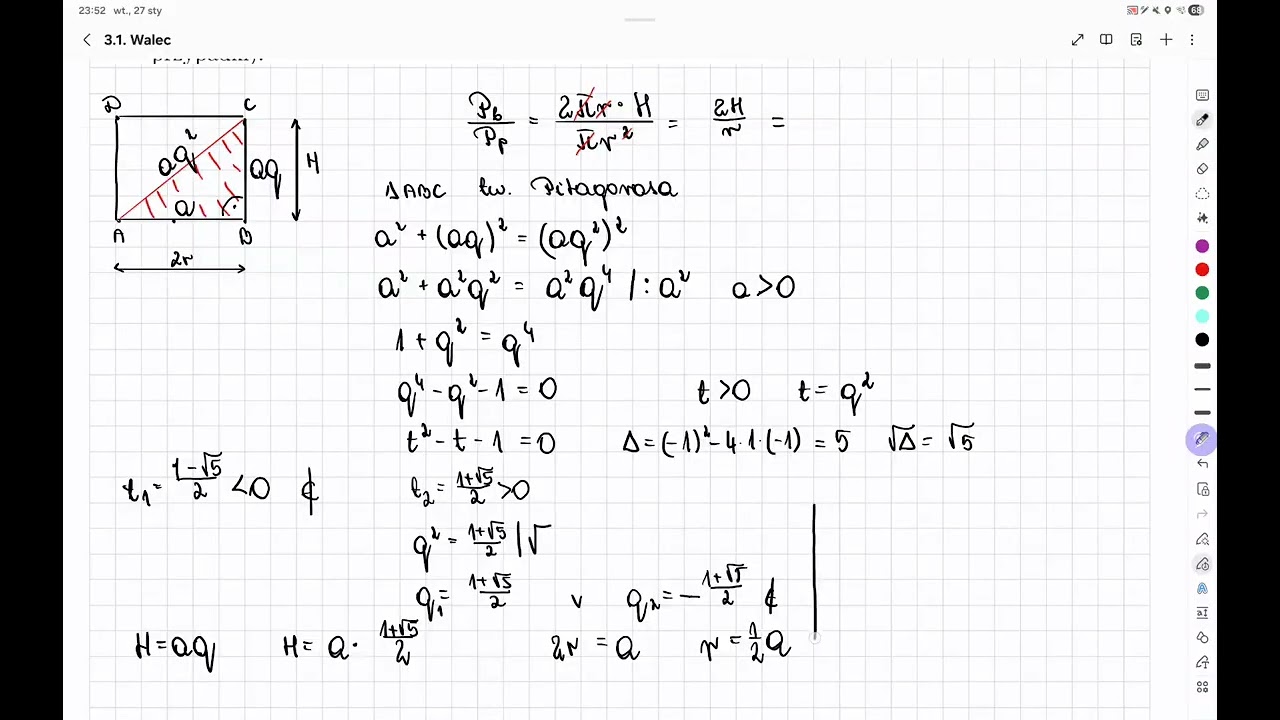 23:52 wt., 27 sty
68
3.1. Walec
przypadnij.
D C
aq²
aq
H
a
A B
2r
P_b/P_p = 2πr·H/πr² = 2H/r =
ΔABC tw. Pitagorasa
a² + (aq)² = (aq²)²
a² + a²q² = a²q⁴ |:a² a>0
1 + q² = q⁴
q⁴ - q² - 1 = 0 t>0 t = q²
t² - t - 1 = 0 Δ = (-1)² - 4·1·(-1) = 5 √Δ = √5
t₁ = (1-√5)/2 <0 ¢ t₂ = (1+√5)/2 >0
q² = (1+√5)/2 |√
q₁ = (1+√5)/2 v q₂ = -(1+√5)/2 ¢
H = aq H = a·(1+√5)/2 2r = a r = 1/2 a